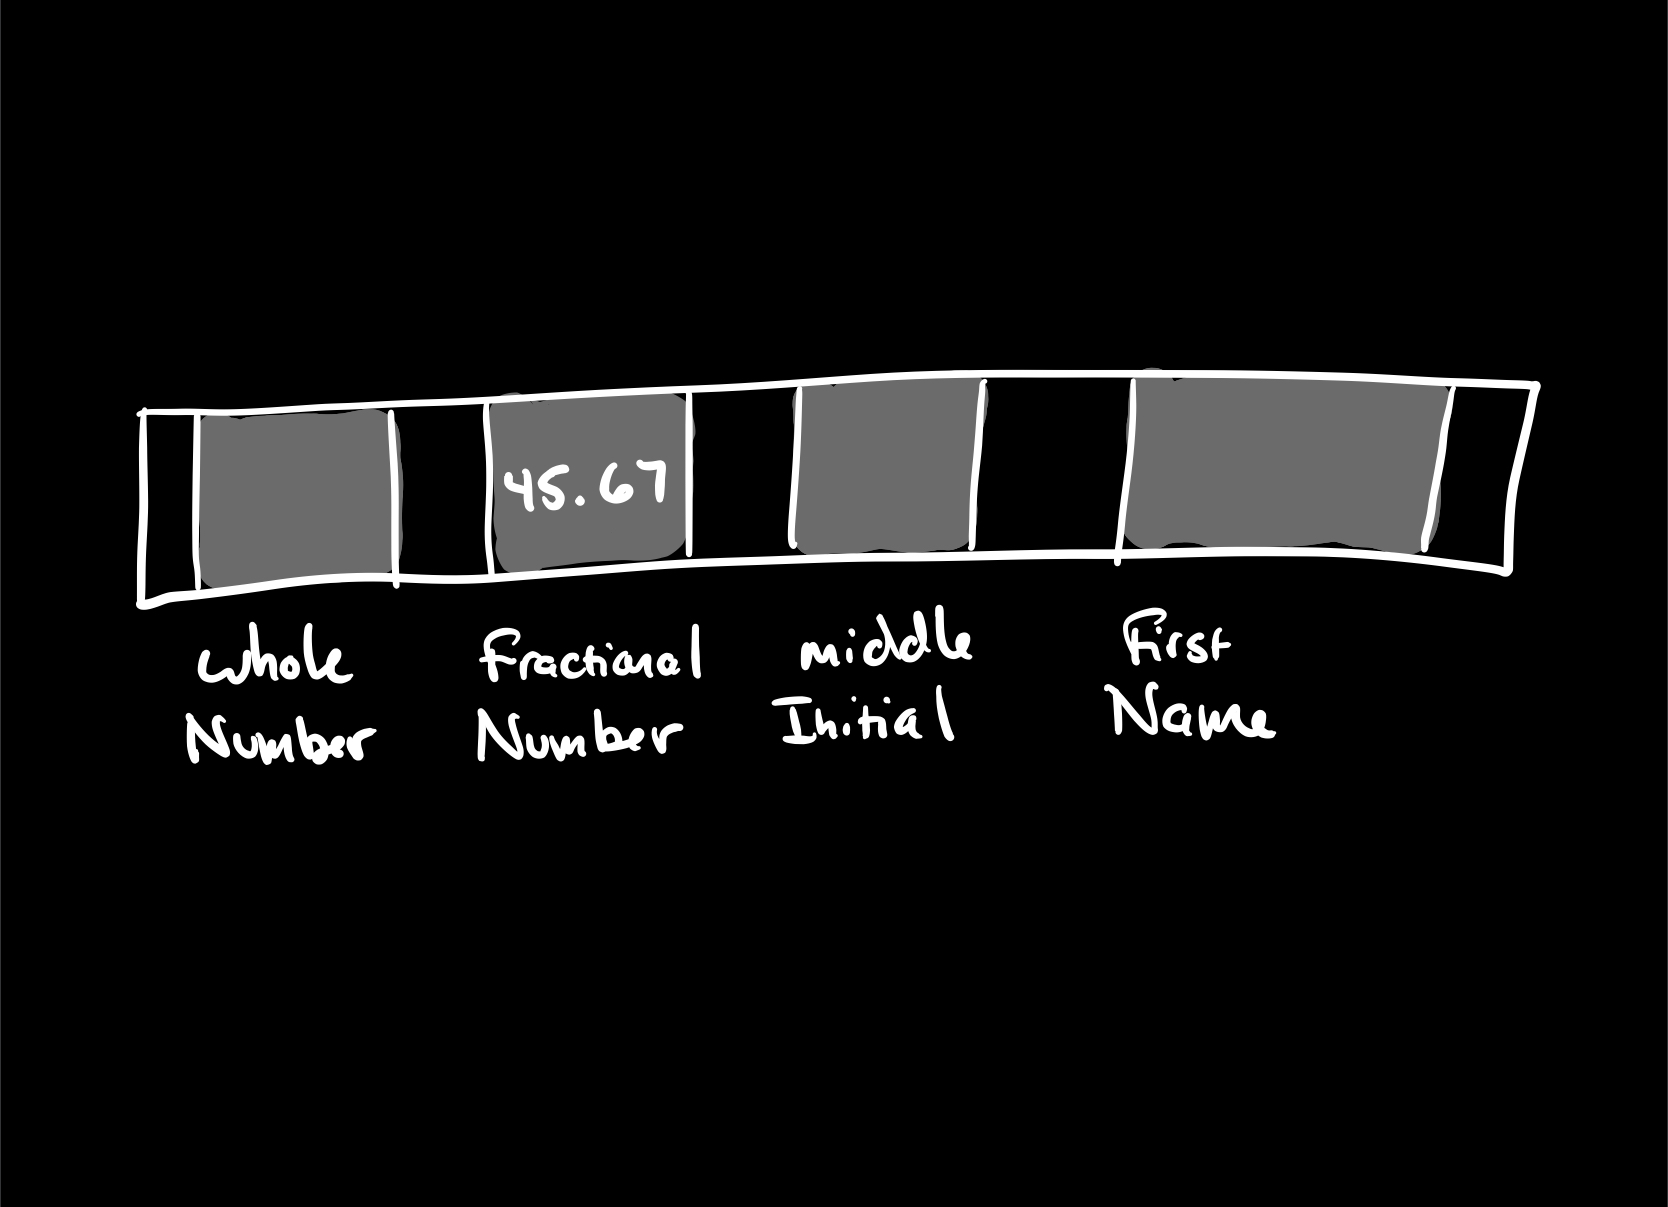 45.67
Whole
Number
Fractional
Number
middle
Initial
First
Name